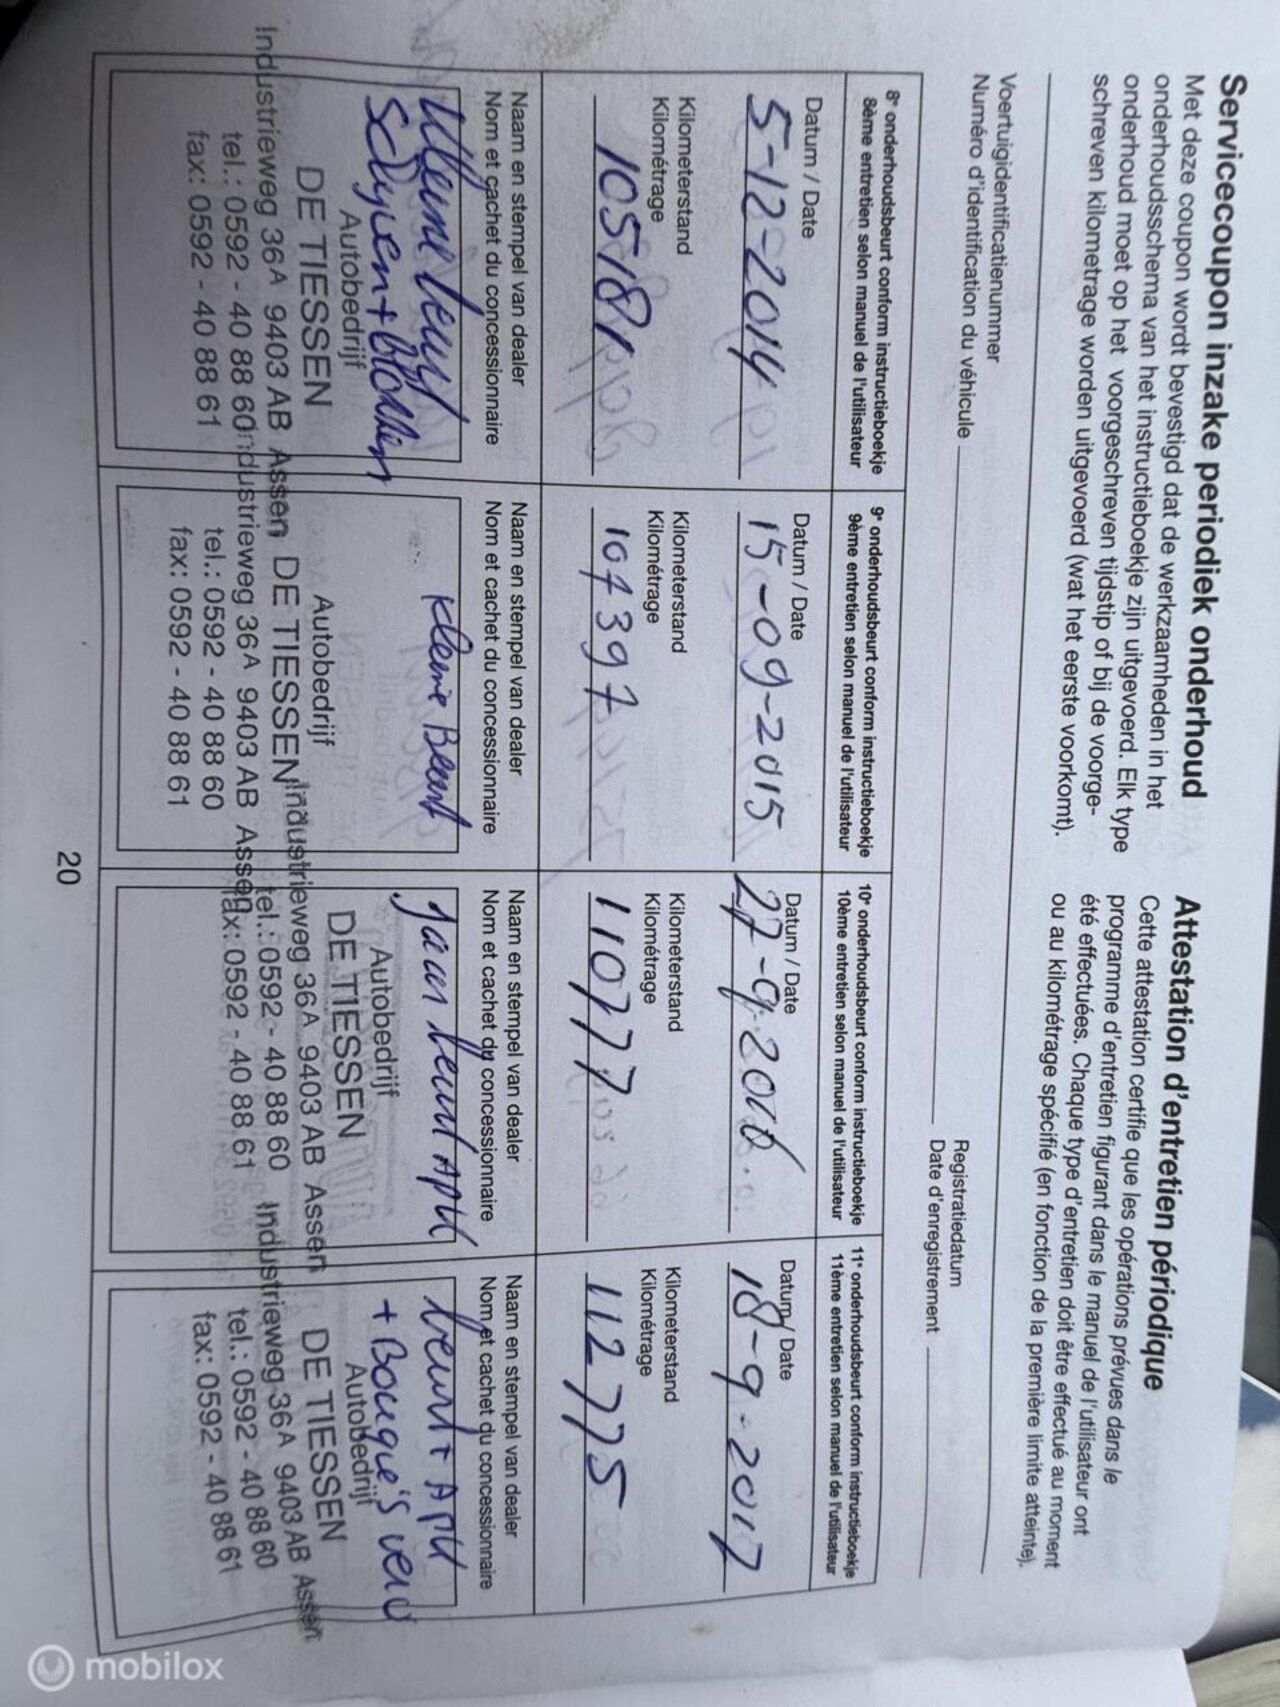 Servicecoupon inzake periodiek onderhoud
Met deze coupon wordt bevestigd dat de werkzaamheden in het
onderhoudsschema van het instructieboekje zijn uitgevoerd. Elk type
onderhoud moet op het voorgeschreven tijdstip of bij de voorge-
schreven kilometrage worden uitgevoerd (wat het eerste voorkomt).
Attestation d'entretien périodique
Cette attestation certifie que les opérations prévues dans le
programme d'entretien figurant dans le manuel de l'utilisateur ont
été effectuées. Chaque type d'entretien doit être effectué au moment
ou au kilométrage spécifié (en fonction de la première limite atteinte).
Voertuigidentificatienummer
Numéro d'identification du véhicule
Registratiedatum
Date d'enregistrement
8e onderhoudsbeurt conform instructieboekje
8ème entretien selon manuel de l'utilisateur
Datum / Date
5-12-2014
Kilometerstand
Kilométrage
105181
Naam en stempel van dealer
Nom et cachet du concessionnaire
kleine beurt
Autobedrijf
DE TIESSEN
Industrieweg 36A 9403 AB Assen
tel.: 0592 - 40 88 60
fax: 0592 - 40 88 61
9e onderhoudsbeurt conform instructieboekje
9ème entretien selon manuel de l'utilisateur
Datum / Date
15-09-2015
Kilometerstand
Kilométrage
107397
Naam en stempel van dealer
Nom et cachet du concessionnaire
kleine Beurt
Autobedrijf
DE TIESSEN
Industrieweg 36A 9403 AB Assen
tel.: 0592 - 40 88 60
fax: 0592 - 40 88 61
10e onderhoudsbeurt conform instructieboekje
10ème entretien selon manuel de l'utilisateur
Datum / Date
27-9-2016
Kilometerstand
Kilométrage
110777
Naam en stempel van dealer
Nom et cachet du concessionnaire
beurt APK
Autobedrijf
DE TIESSEN
Industrieweg 36A 9403 AB Assen
tel.: 0592 - 40 88 60
fax: 0592 - 40 88 61
11e onderhoudsbeurt conform instructieboekje
11ème entretien selon manuel de l'utilisateur
Datum / Date
18-9-2017
Kilometerstand
Kilométrage
112775
Naam en stempel van dealer
Nom et cachet du concessionnaire
beurt + APK
+ Bougie's
Autobedrijf
DE TIESSEN
Industrieweg 36A 9403 AB Assen
tel.: 0592 - 40 88 60
fax: 0592 - 40 88 61
20
mobilox